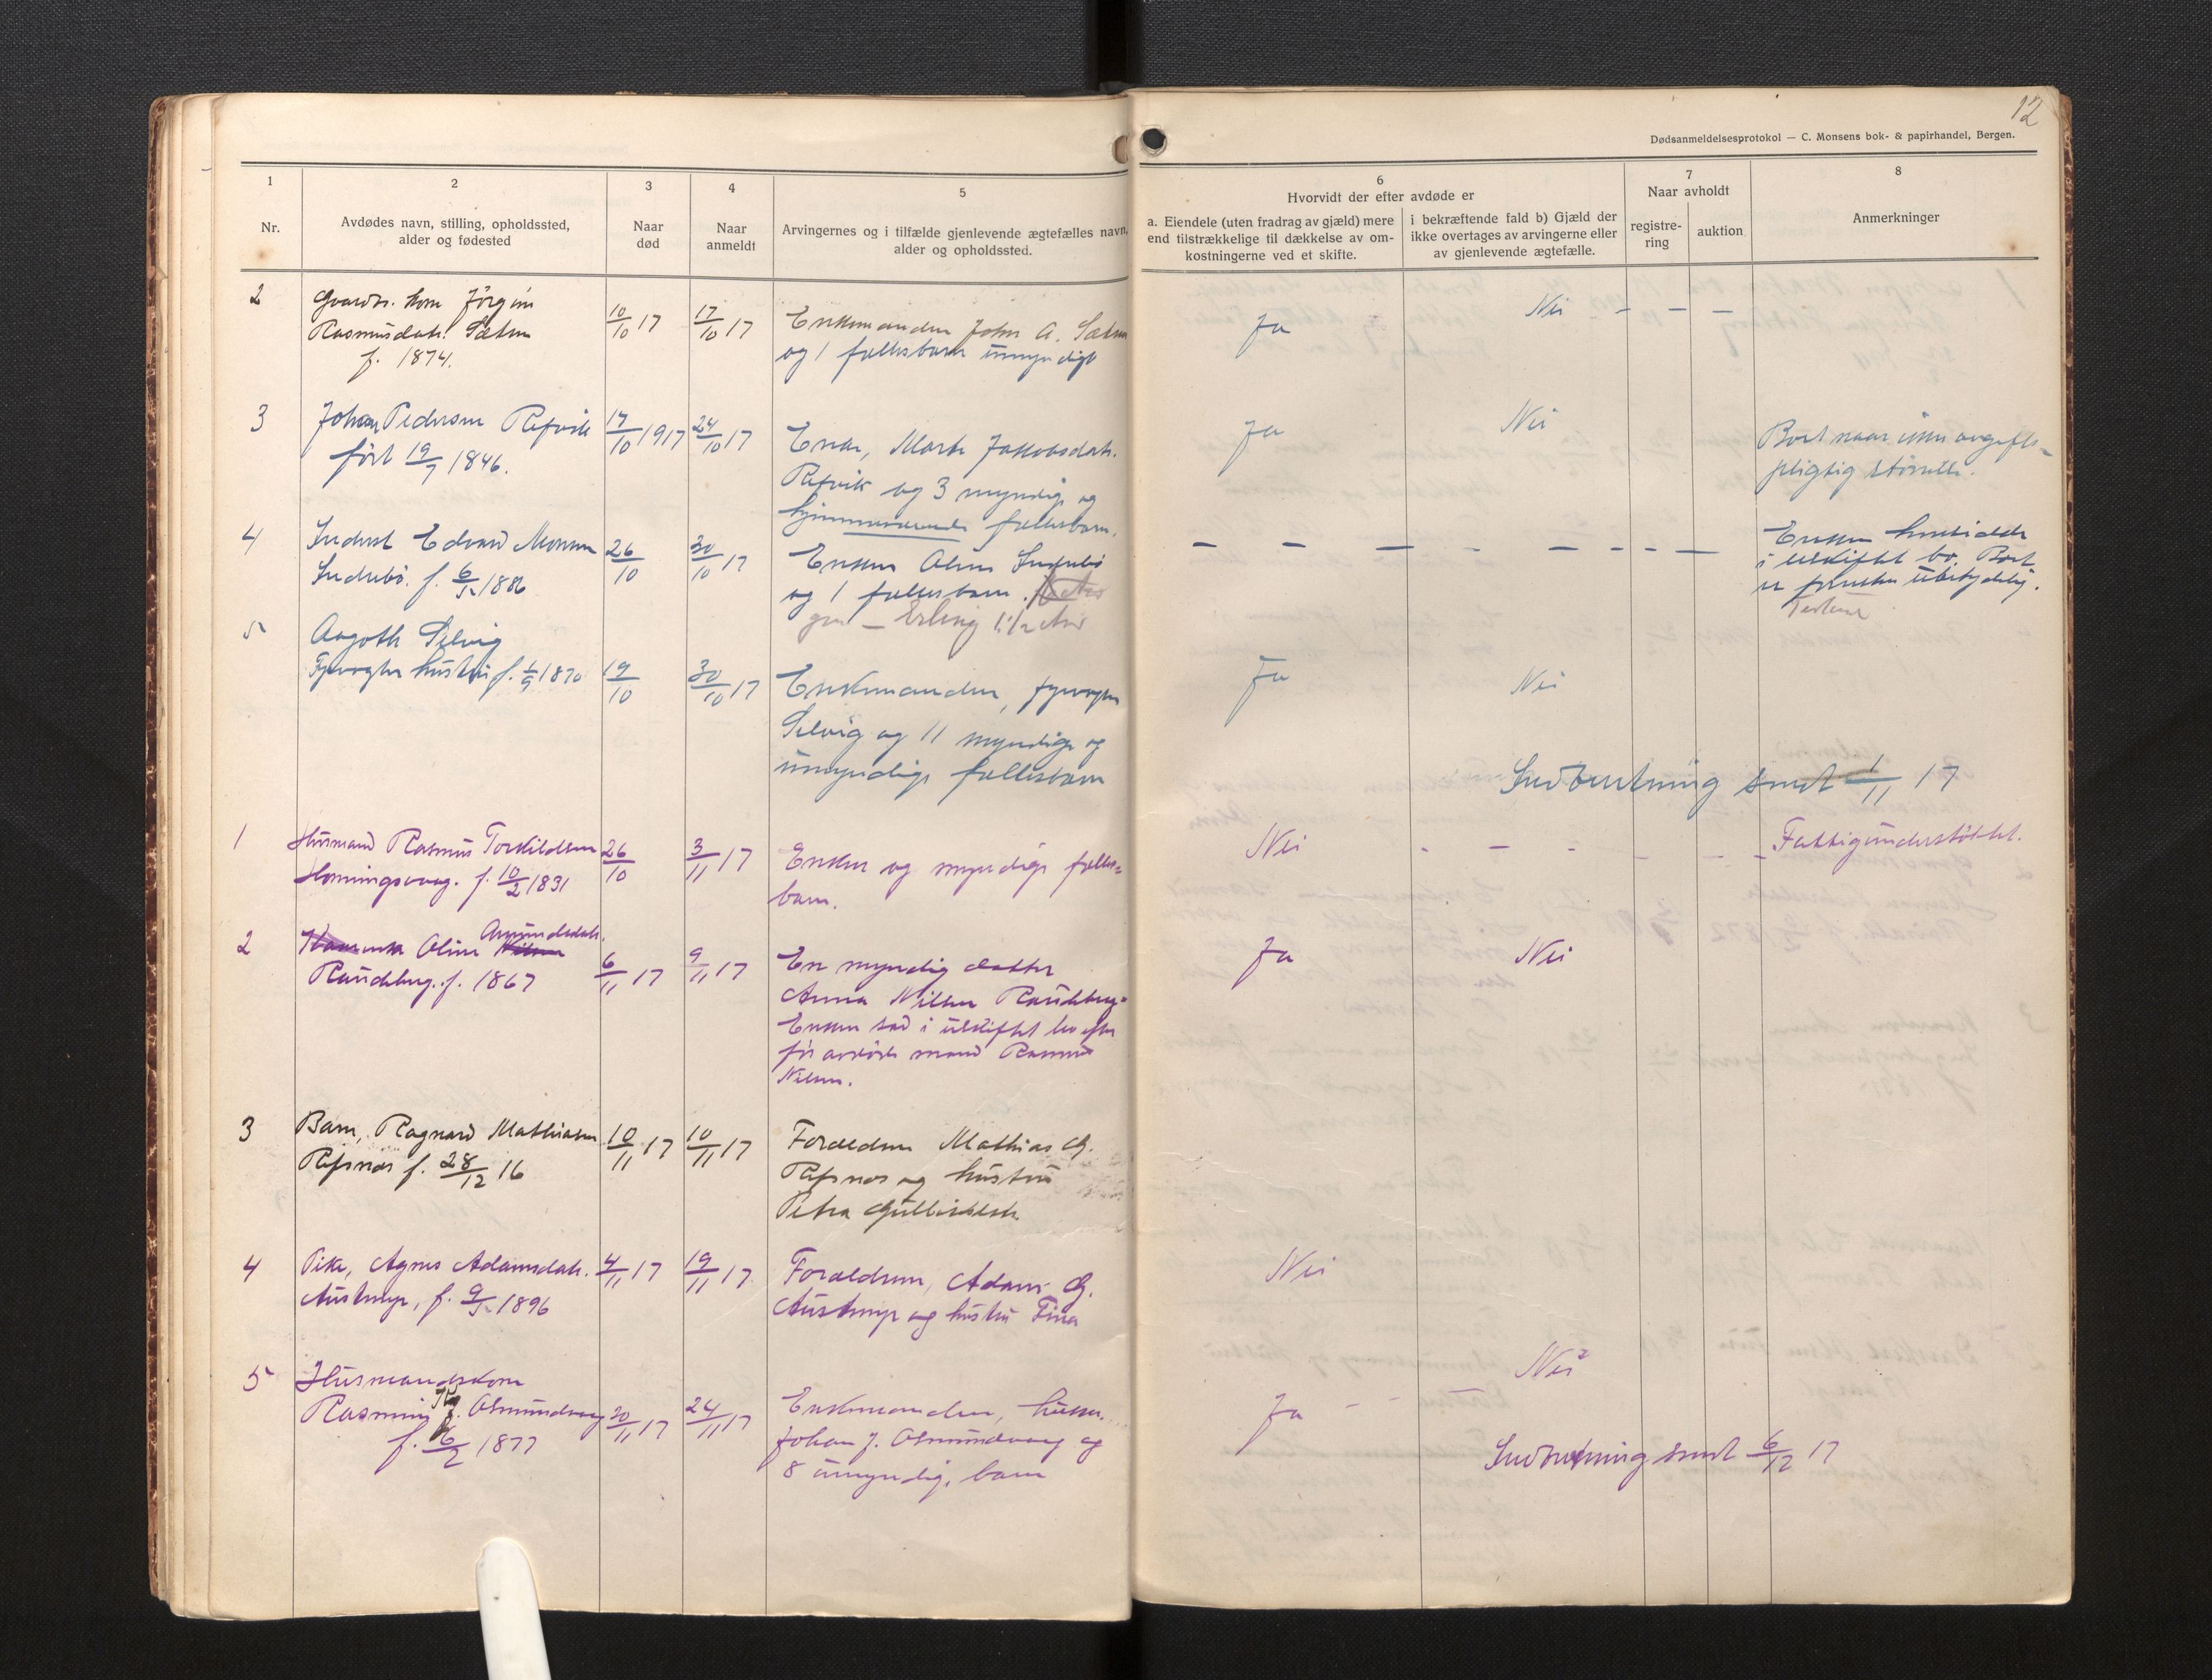 12
Dødsanmeldelsesprotokol — C. Monsens bok- & papirhandel, Bergen.
1
Nr.
2
Avdødes navn, stilling, opholdssted,
alder og fødested
3
Naar
død
4
Naar
anmeldt
5
Arvingernes og i tilfælde gjenlevende ægtefælles navn,
alder og opholdssted.
6
Hvorvidt der efter avdøde er
a. Eiendele (uten fradrag av gjæld) mere
end tilstrækkelige til dækkelse av om-
kostningerne ved et skifte.
i bekræftende fald b) Gjæld der
ikke overtages av arvingerne eller
av gjenlevende ægtefælle.
7
Naar avholdt
registre-
ring
auktion
8
Anmerkninger
2 Gaardbr. kone Jörgine 10/10 17 17/10 17 Enkemanden John A. Sætren Ja Nei - - -
Rasmusdatr. Sætren og 1 fællesbarn umyndigt
f. 1874.
3 Johan Pedersen Refvik 17/10 1917 24/10 17 Enke, Marte Jakobsdatr. Ja Nei Boet naar ikke avgifts-
født 19/7 1846. Refvik og 3 myndige og pligtig störrelse.
hjemmeværende fællesbarn.
4 Inderst Edvard Monsen 26/10 30/10 17 Enken Oline Indrebö — — — - — - - - — Enken hensidder
Indrebö. f. 6/ 1886 og 1 fællesbarn. i uskiftet bo. Boet
- Erling 1 1/2 Aar er forresten ubetydelig.
5 Aagoth Selvig
Fyrvogter hustru f. 1/9 1870 19/10 30/10 17 Enkemanden, fyrvogter Ja Nei
Selvig og 11 myndige og
umyndige fællesbarn
Indberetning sendt 1/11 17
1 Husmand Rasmus Torkildsen 26/10 3/11 17 Enken og myndige fælles- Nei - - - - - - Fattigunderstöttet.
Honningsvaag. f. 10/2 1831 barn.
2 Oline Amundsdatr. 6/11 17 9/11 17 En myndig datter Ja Nei
Raudeberg. f. 1867 Anna Nilsen Raudeberg-
Enken sad i uskiftet bo efter
för avdöde mand Rasmus
Nilsen.
3 Barn, Ragnard Mathiasen 10/11 17 10/11 17 Forældrene Mathias G.
Refsnes f. 28/12 16 Refsnes og hustru
Petra
4 Pike, Agnes Adamsdatr. 4/11 17 19/11 17 Forældrene, Adam G. Nei
f. 9/ 1896 og hustru Fina
5 Husmandskone
Rasmine J. Osmundvaag 20/11 17 24/11 17 Enkemanden, husm. Ja - - — Nei
f. 6/2 1877 Johan J. Osmundvaag og
8 umyndige barn
Indberetning sendt 6/12 17